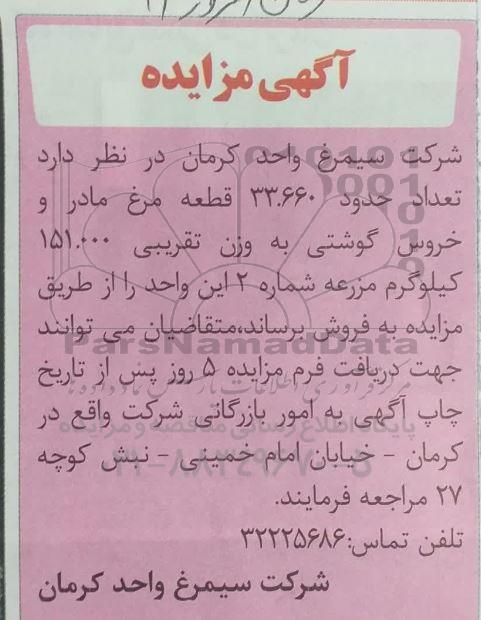 آگهی مزایده
شرکت سیمرغ واحد کرمان در نظر دارد
تعداد حدود ۳۳.۶۶۰ قطعه مرغ مادر و
خروس گوشتی به وزن تقریبی ۱۵۱.۰۰۰
کیلوگرم مزرعه شماره ۲ این واحد را از طریق
مزایده به فروش برساند،متقاضیان می توانند
ParsNamadData
جهت دریافت فرم مزایده ۵ روز پس از تاریخ
چاپ آگهی به امور بازرگانی شرکت واقع در
پایگاه اطلاع رسانی مناقصه و مزایده
کرمان - خیابان امام خمینی - نبش کوچه
۲۷ مراجعه فرمایند.
تلفن تماس:۳۲۲۲۵۶۸۶
شرکت سیمرغ واحد کرمان